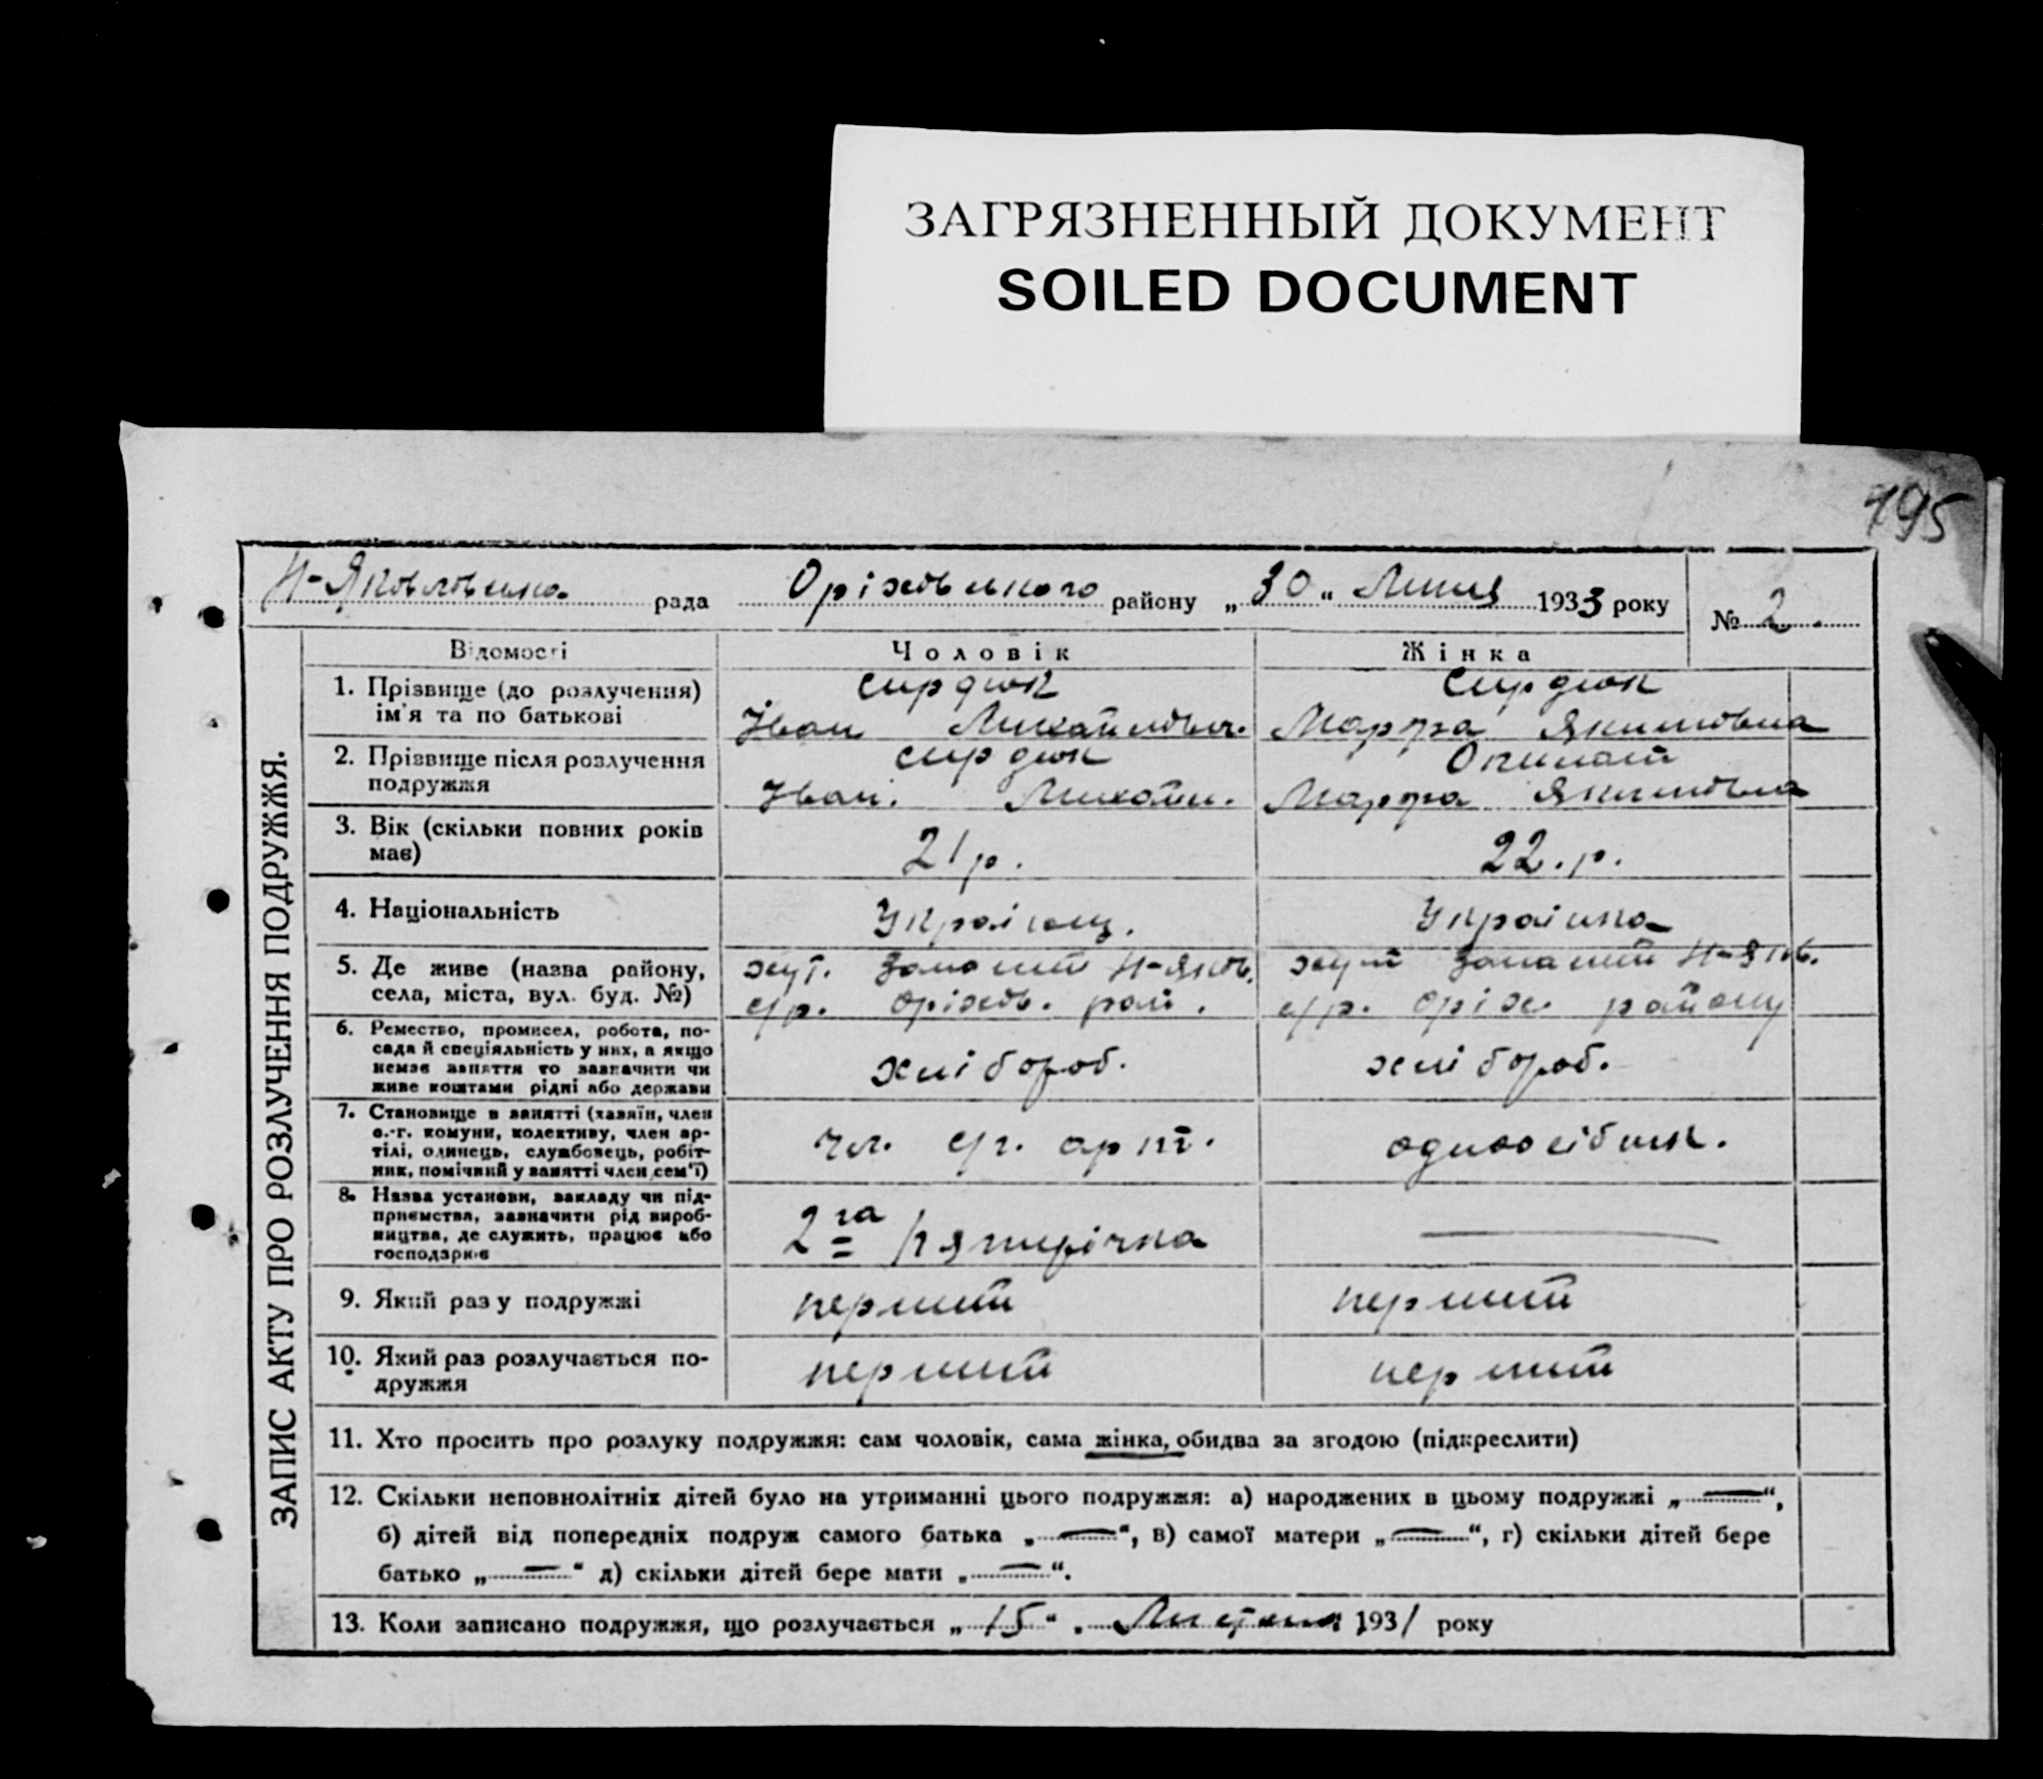 ЗАГРЯЗНЕННЫЙ ДОКУМЕНТ
SOILED DOCUMENT
195
Н-Яковлівська рада Оріхівського району „30“ Липня 1933 року № 2.
ЗАПИС АКТУ ПРО РОЗЛУЧЕННЯ ПОДРУЖЖЯ.
Відомості Чоловік Жінка
1. Прізвище (до розлучення) ім'я та по батькові
Сирдюк
Іван Михайлович.
Сирдюк
Марфа Якимовна
2. Прізвище після розлучення подружжя
Сирдюк
Іван. Михайл.
Марфа Якимовна
3. Вік (скільки повних років має)
21 р.
22. р.
4. Національність
Украінец.
Украінка
5. Де живе (назва району, села, міста, вул. буд. №)
хут. Н-Яков.
с/р. Оріхів. рай.
хут Н-Яков.
с/р. Оріх. району
6. Ремество, промисел, робота, по-
сада й спеціяльність у них, а якщо
немає заняття то зазначити чи
живе коштами рідні або держави
хлібороб.
хлібороб.
7. Становище в занятті (хазяїн, член
с.-г. комуни, колективу, член ар-
тілі, одинець, службовець, робіт-
ник, помічний у занятті член сем'ї)
чл. с/г. арт.
одноосібник.
8. Назва установи, закладу чи під-
приємства, зазначити рід вироб-
ництва, де служить, працює або
господарює
2га пятирічка
—
9. Який раз у подружжі
перший
перший
10. Який раз розлучається по-
дружжя
перший
перший
11. Хто просить про розлуку подружжя: сам чоловік, сама жінка, обидва за згодою (підкреслити)
12. Скільки неповнолітніх дітей було на утриманні цього подружжя: а) народжених в цьому подружжі „—“,
б) дітей від попередніх подруж самого батька „—“, в) самої матери „—“, г) скільки дітей бере
батько „—“ д) скільки дітей бере мати „—“.
13. Коли записано подружжя, що розлучається „15“ 1931 року